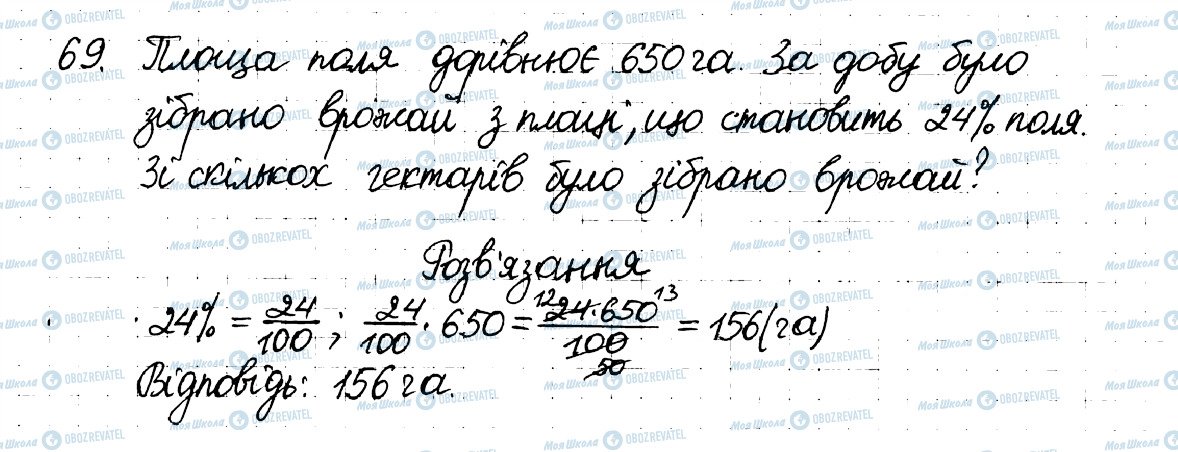 69. Площа поля дорівнює 650 га. За добу було
зібрано врожай з площі, що становить 24% поля.
Зі скількох гектарів було зібрано врожай?
Розв'язання
24% = 24/100 ; 24/100 · 650 = 12 24 · 650 13 / 100 50 = 156 (га)
Відповідь: 156 га.